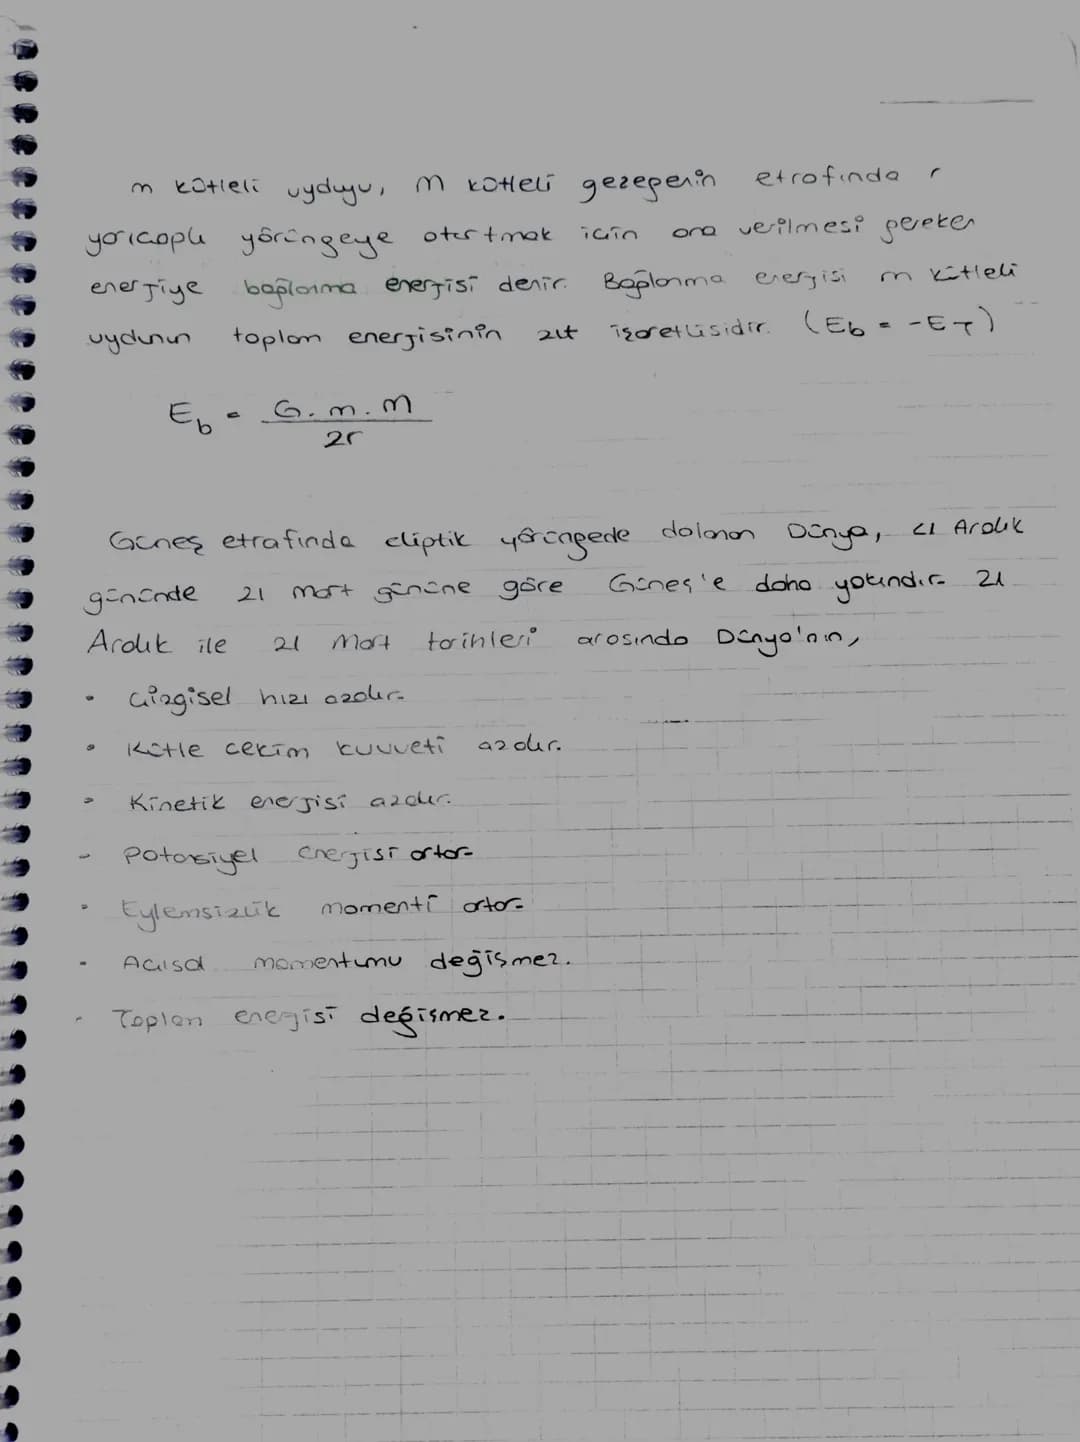 m kütleli uyduyu, M kütleli gezegenin etrafında r
yarıçaplı yörüngeye oturtmak için ona verilmesi gereken
enerjiye bağlanma enerjisi denir. Bağlanma enerjisi m kütleli
uydunun toplam enerjisinin zıt işaretlisidir. (Eb = -ET)
Eb = G.m.M / 2r
Güneş etrafında eliptik yörüngede dolanan Dünya, 21 Aralık
gününde 21 Mart gününe göre Güneş'e daha yakındır. 21
Aralık ile 21 Mart tarihleri arasında Dünya'nın,
• Çizgisel hızı azalır.
• Kütle çekim kuvveti azalır.
• Kinetik enerjisi azalır.
• Potansiyel enerjisi artar.
• Eylemsizlik momenti artar.
• Açısal momentumu değişmez.
• Toplam enerjisi değişmez.